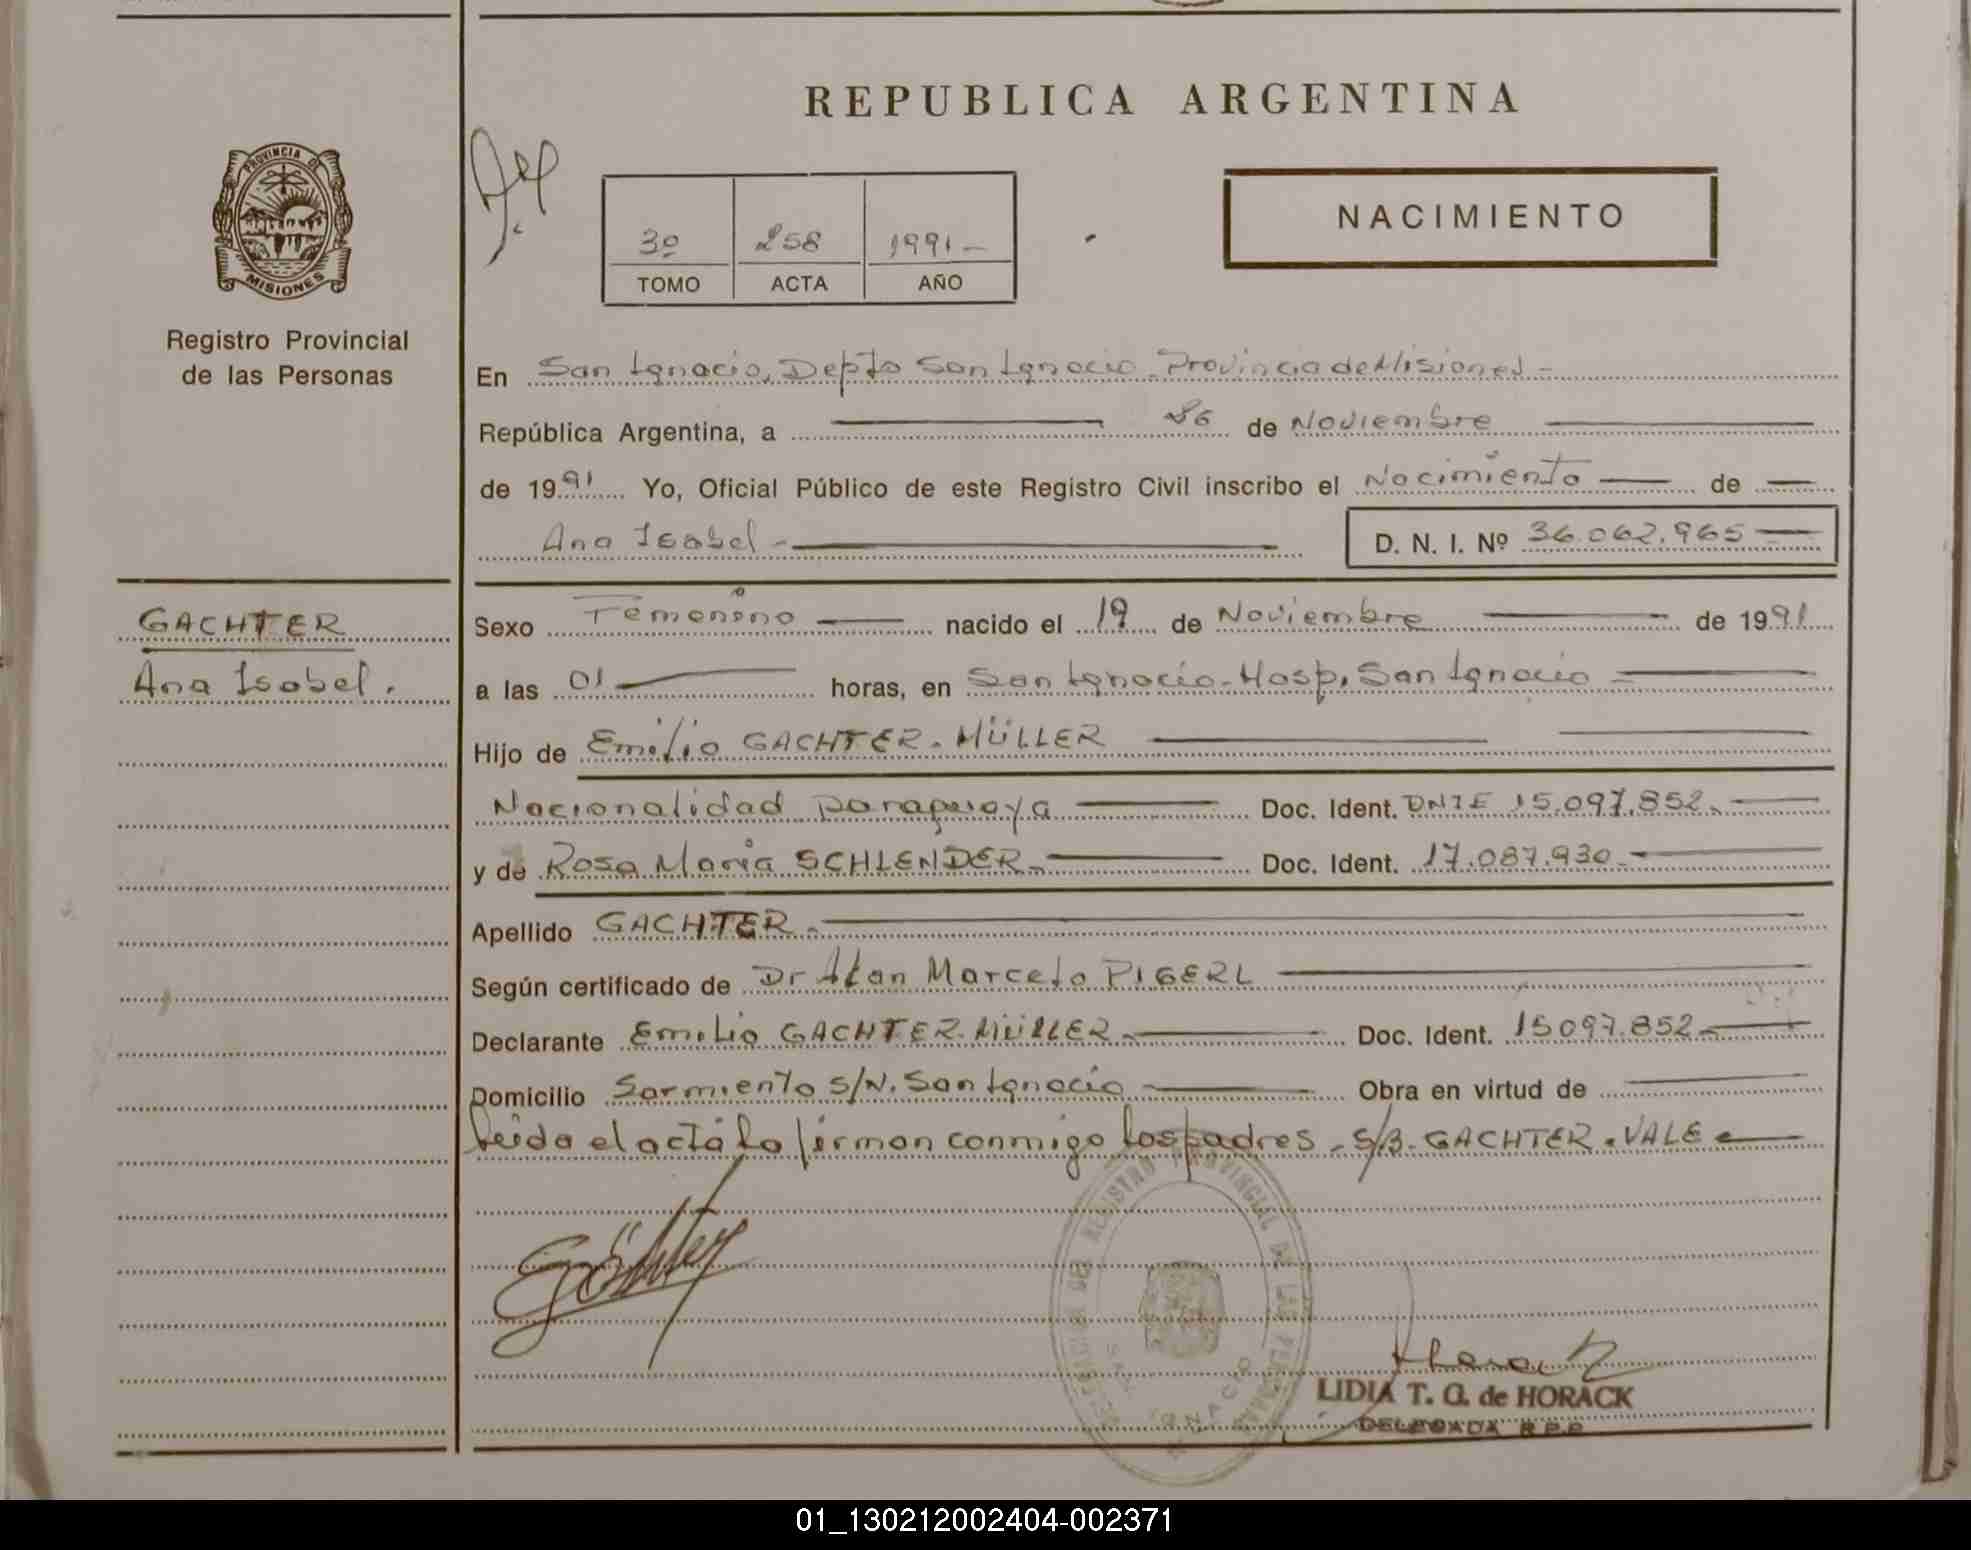 REPUBLICA ARGENTINA
PROVINCIA DE
MISIONES
Registro Provincial
de las Personas
3º 258 1991
TOMO ACTA AÑO
NACIMIENTO
En San Ignacio, Depto San Ignacio - Provincia de Misiones -
República Argentina, a 26 de Noviembre
de 1991 Yo, Oficial Público de este Registro Civil inscribo el Nacimiento de
Ana Isabel - D. N. I. Nº 36.062.965
GACHTER
Ana Isabel.
Sexo Femenino nacido el 19 de Noviembre de 1991
a las 01 horas, en San Ignacio - Hosp. San Ignacio
Hijo de Emilio GACHTER - MÜLLER
Nacionalidad paraguaya Doc. Ident. DNIE 15.097.852.
y de Rosa Maria SCHLENDER Doc. Ident. 17.087.930
Apellido GACHTER.
Según certificado de Dr Alan Marcelo PIGERL
Declarante Emilio GACHTER - MÜLLER Doc. Ident. 15097.852
Domicilio Sarmiento S/N. San Ignacio Obra en virtud de
leida el acta la firman conmigo los padres - S/B. GACHTER. VALE
DELEGACION DEL REGISTRO PROVINCIAL DE LAS PERSONAS
SAN IGNACIO
Horack
LIDIA T. G. de HORACK
DELEGADA R.P.P.
01_130212002404-002371